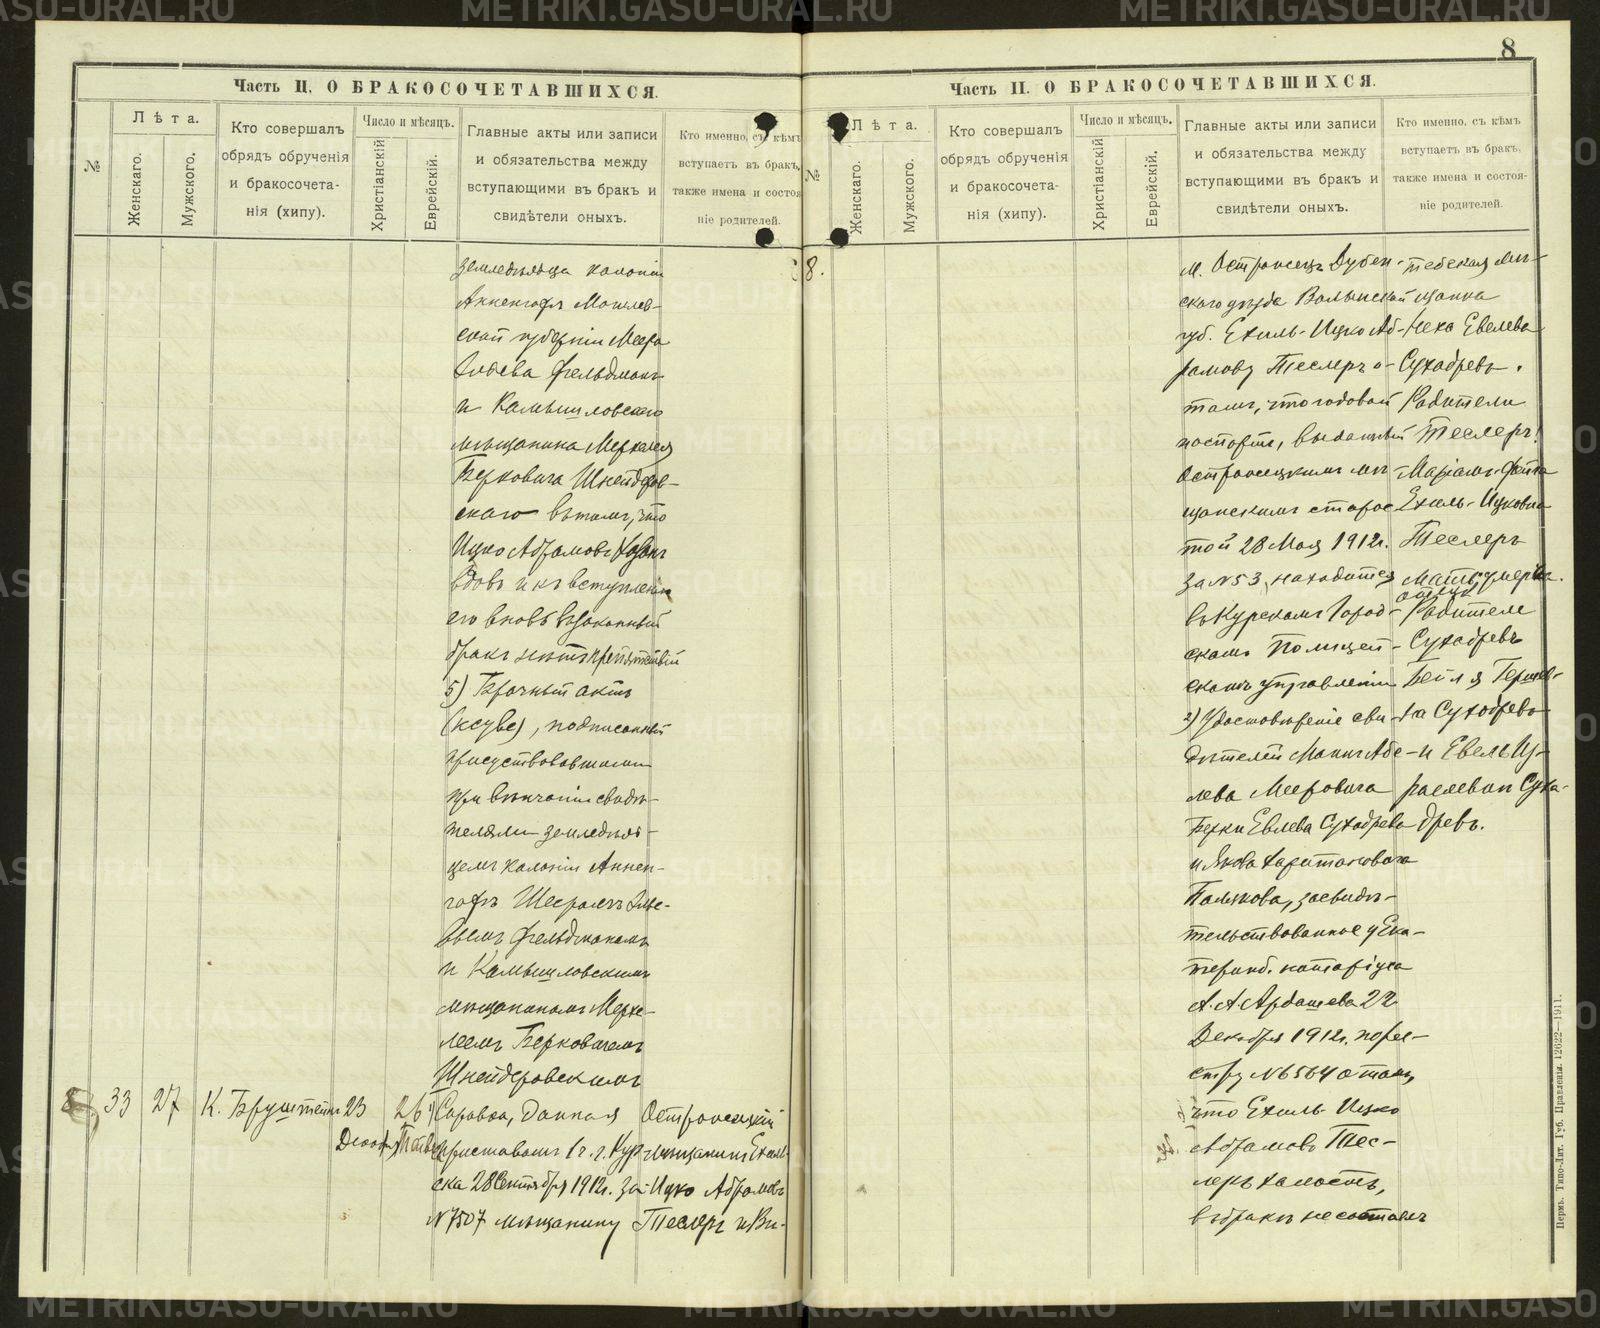 METRIKI.GASO-URAL.RU
8
Часть II. О БРАКОСОЧЕТАВШИХСЯ.
№
Лѣта.
Женскаго.
Мужского.
Кто совершалъ
обрядъ обрученія
и бракосочета-
нія (хипу).
Число и мѣсяцъ.
Христіанскій
Еврейскій.
Главные акты или записи
и обязательства между
вступающими въ бракъ и
свидѣтели оныхъ.
Кто именно, съ кѣмъ
вступаетъ въ бракъ,
также имена и состоя
ніе родителей.
земледѣльца колоніи
Анненгофъ Могилев-
ской губерніи Меера
Фельдманъ
и Камышловскаго
мѣщанина Мерхелея
Берковича Шнейдеров-
скаго въ томъ, что
Ицко Абрамовъ
вдовъ и къ вступленію
его вновь въ законный
бракъ нѣтъ препятствій
5) Брачный актъ
(ксуве), подписанный
присутствовавшими
при вѣнчаніи свидѣ-
телями земледѣль-
цемъ колоніи Аннен-
гофъ
Фельдманомъ
и Камышловскимъ
мѣщаниномъ Мерхе-
леемъ Берковичемъ
Шнейдеровскимъ
8
33
27
К. Бруштейнъ
23
Декабря
26
Тейвеса
1) Справка, данная
приставомъ 1 ч. г. Кур-
ска 28 Сентября 1912 г. за
№ 7507 мѣщанину
Остропецкій
мѣщанинъ Ехиль-
Ицко Абрамовъ
Теслеръ и Ви-
Часть II. О БРАКОСОЧЕТАВШИХСЯ.
№
Лѣта.
Женскаго.
Мужского.
Кто совершалъ
обрядъ обрученія
и бракосочета-
нія (хипу).
Число и мѣсяцъ.
Христіанскій
Еврейскій.
Главные акты или записи
и обязательства между
вступающими въ бракъ и
свидѣтели оныхъ.
Кто именно, съ кѣмъ
вступаетъ въ бракъ,
также имена и состоя-
ніе родителей.
8.
м. Остропецъ Дубен-
скаго уѣзда Волынской
губ. Ехиль-Ицко Аб-
рамову Теслеръ о
томъ, что годовой
паспортъ, выданный
Остропецкимъ мѣ-
щанскимъ старос-
той 28 Мая 1912 г.
за № 53, находится
въ Курскомъ Город-
скомъ Полицей-
скомъ управленіи
2) Удостовѣреніе сви-
дѣтелей Абе-
лева Мееровича
Берки Евлева Сухадрева
и Якова Харитоновича
Полякова, засвидѣ-
тельствованное у Ека-
теринб. нотаріуса
А. А. Ардашева 22
Декабря 1912 г. по рее-
стру № 6564 о томъ,
что Ехиль-Ицко
Абрамовъ Тес-
леръ холостъ,
въ бракѣ не состоялъ
тебская мѣ-
щанка
Неха Евелева
Сухадревъ.
Родители
Теслеръ:
Маріамъ-Фейга
Ехиль-Ицковна
Теслеръ
Мать,
отецъ
умеръ.
Родители
Сухадревъ
Бейля Гершев-
на Сухадревъ
и Евель Из-
раелевъ Суха-
древъ.
Пермь. Типо-Лит. Губ. Правленія. 12622—1911.